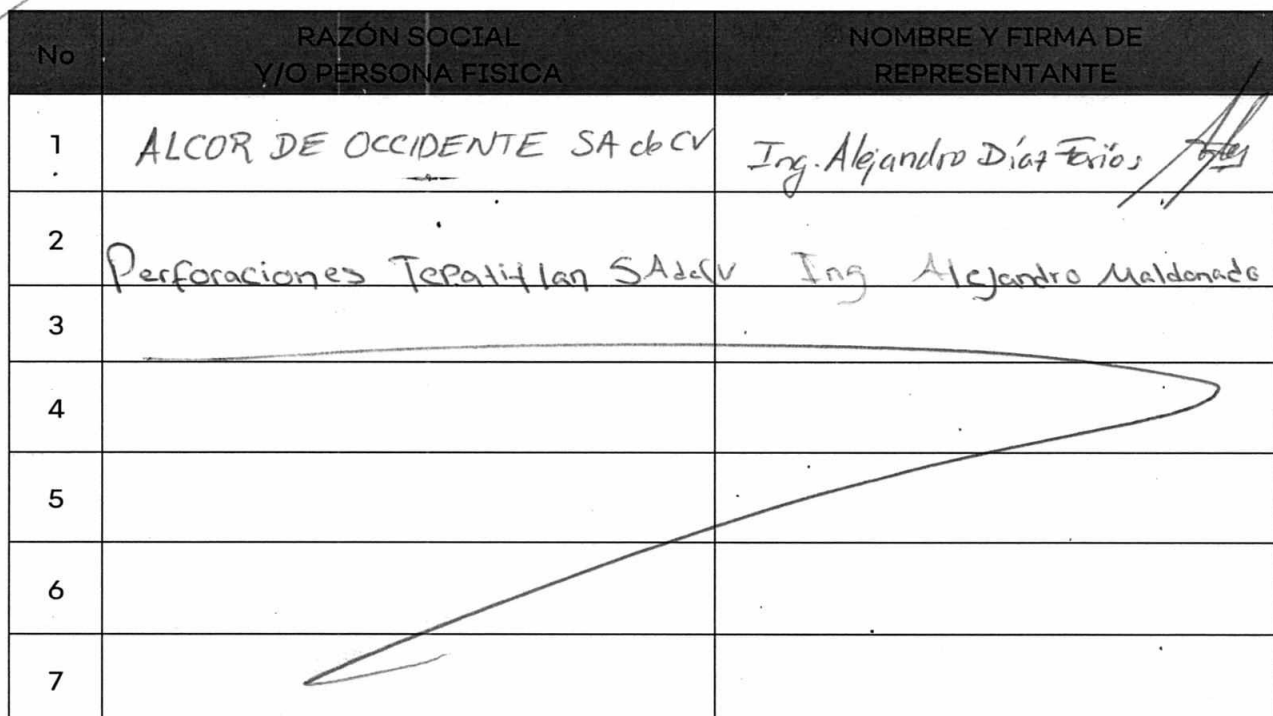 No
RAZÓN SOCIAL
Y/O PERSONA FISICA
NOMBRE Y FIRMA DE
REPRESENTANTE
1
ALCOR DE OCCIDENTE SA de CV
Ing. Alejandro Díaz
2
Perforaciones Tepatitlan SA de CV
Ing Alejandro Maldonado
3
4
5
6
7